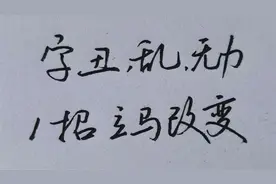 字丑、乱、无力
1招立马改变